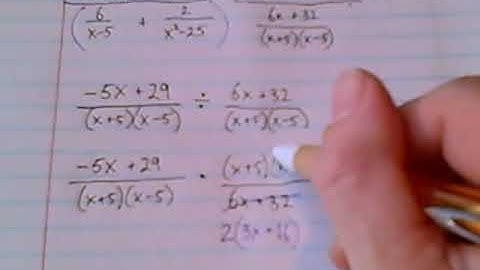 (6/(x-5) + 2/(x²-25)) (6x+32)/((x+5)(x-5))
(-5x+29)/((x+5)(x-5)) ÷ (6x+32)/((x+5)(x-5))
(-5x+29)/((x+5)(x-5)) · (x+5)(x
6x+32
2(3x+16)